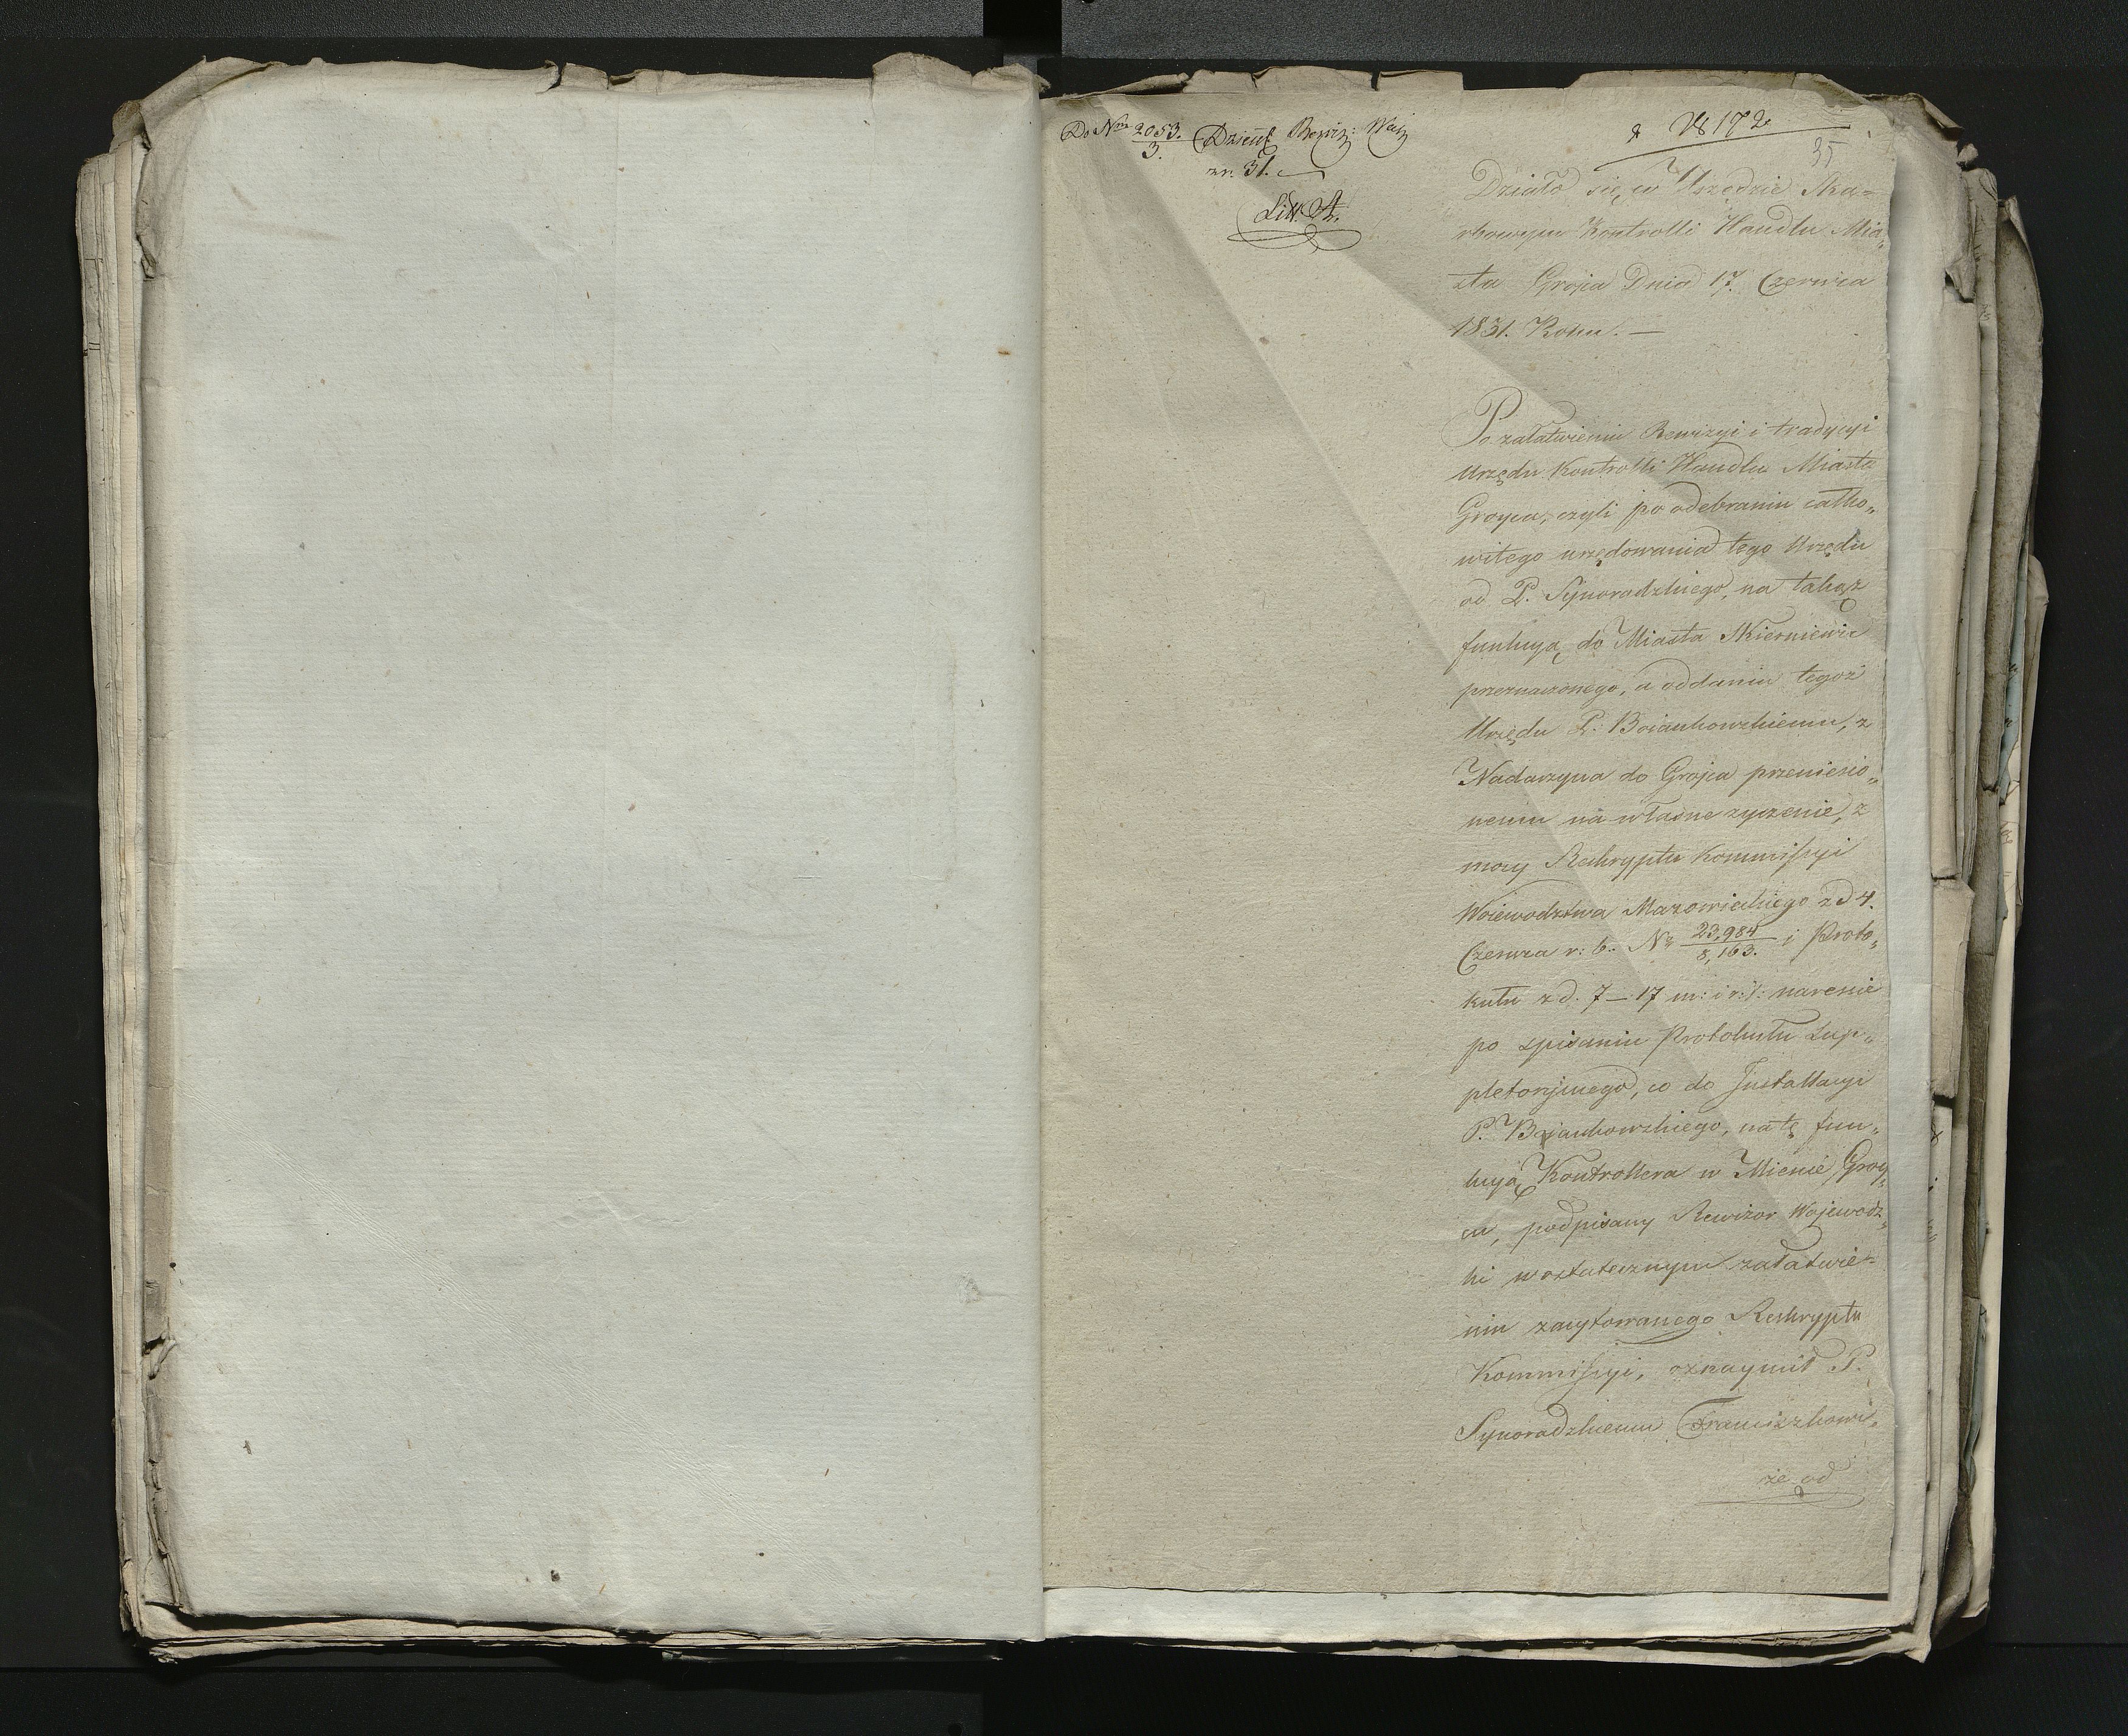 Do Nru 2053. Dzien: Rewiz: Woje
3.
zr. 31.
Litt. A.
172
35
Działo się w Urzędzie Ska=
rbowym Kontrolli Handlu Mia„
sta Grojca Dnia 17. Czerwca
1831. Roku. —
Po załatwieniu Rewizyi i tradycyi
Urzędu Kontrolli Handlu Miasta
Groyca, czyli po odebraniu całko„
witego urzędowania tego Urzędu
od P. Synoradzkiego, na takąż
funkcyą do Miasta Skierniewic
przeznaczonego, a oddaniu tegoż
Urzędu P. Boiankowskiemu, z
Nadarzyna do Grojca przeniesio„
nemu na własne życzenie, z
mocy Reskryptu Kommissyi
Woiewodztwa Mazowieckiego z d 4.
Czerwca r: b. Nr 23,984/8,163. i Proto„
kułu z d. 7 — 17 m: i r: b: nareście
po spisaniu Protokułu Sup„
pletoryjnego, co do Installacyi
P. Bojankowskiego, na tę fun„
kcyą Kontrollera w Mieście Groy„
cu, podpisany Rewizor Wojewódz„
ki w ostatecznym załatwie=
niu zacytowanego Reskryptu
Kommissyi, oznaymił P.
Synoradzkiemu Franciszkowi„
że od